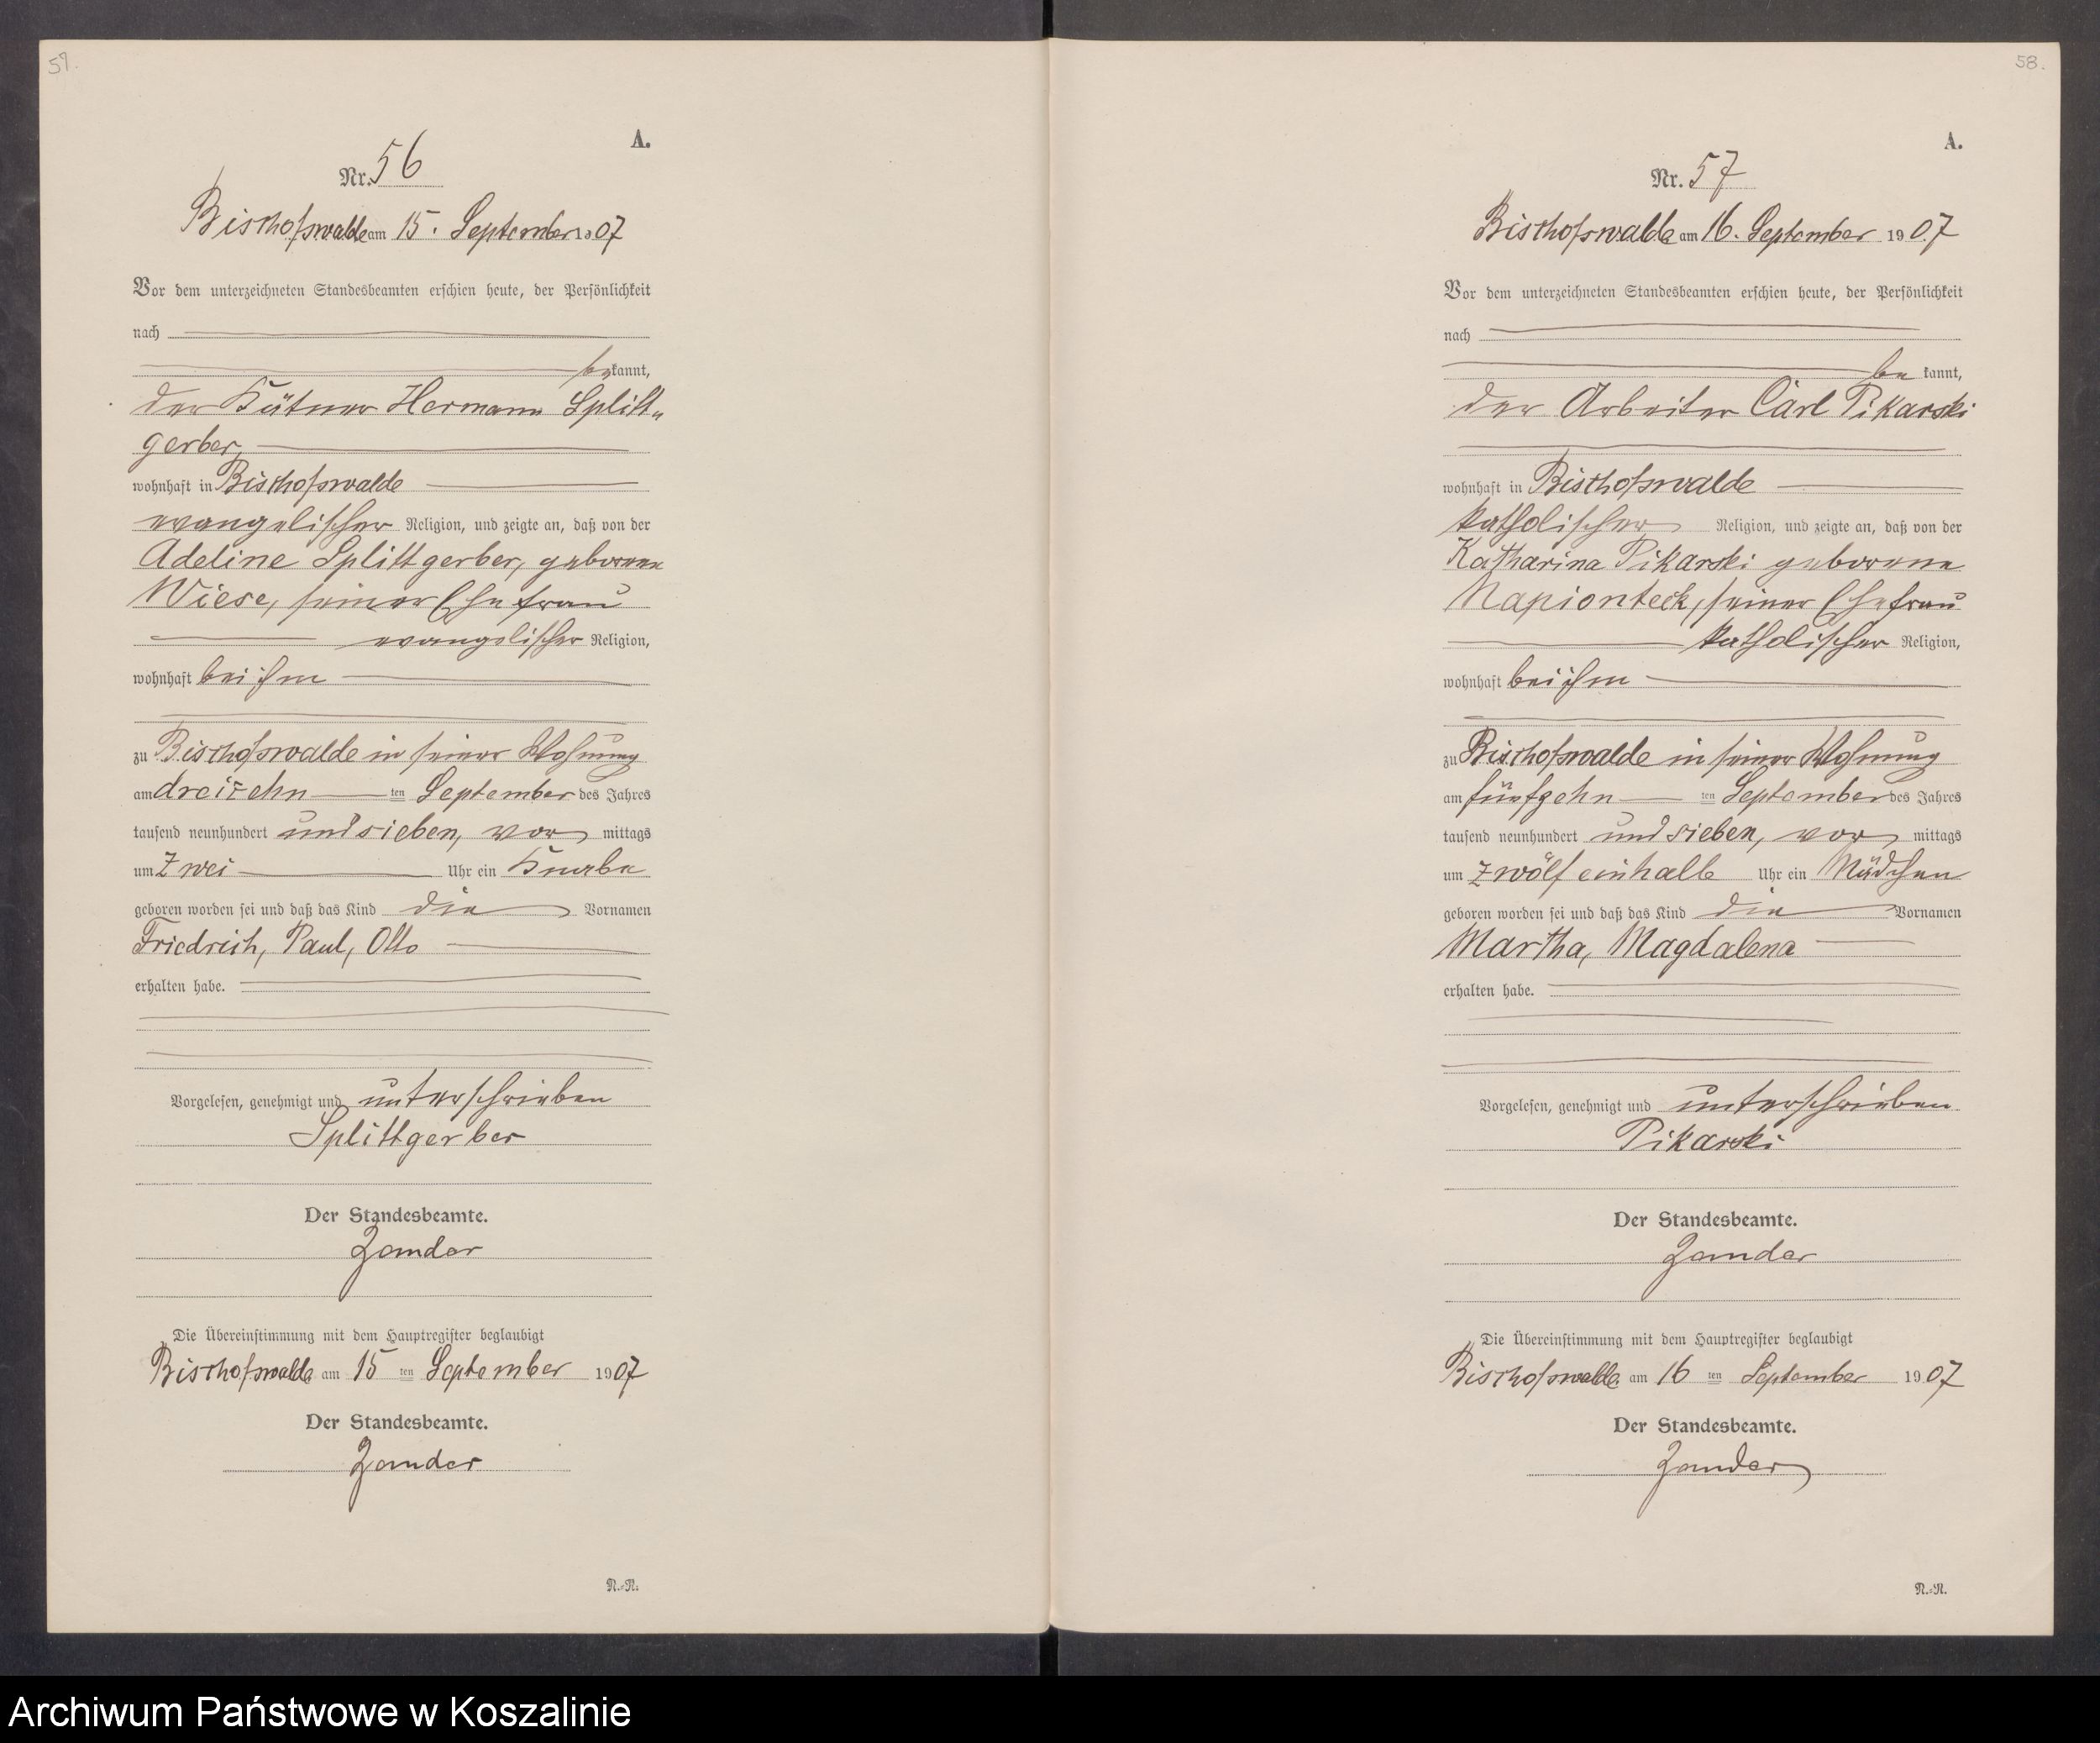 57.
A.
Nr. 56
Bischofswalde am 15. September 1907
Vor dem unterzeichneten Standesbeamten erschien heute, der Persönlichkeit
nach
bekannt,
der Kätner Hermann Splitt-
gerber,
wohnhaft in Bischofswalde
evangelischer Religion, und zeigte an, daß von der
Adeline Splittgerber, geborene
Wiese, seiner Ehefrau
evangelischer Religion,
wohnhaft bei ihm
zu Bischofswalde in seiner Wohnung
am dreizehn ten September des Jahres
tausend neunhundert und sieben, vor mittags
um zwei Uhr ein Knabe
geboren worden sei und daß das Kind die Vornamen
Friedrich, Paul, Otto
erhalten habe.
Vorgelesen, genehmigt und unterschrieben
Splittgerber
Der Standesbeamte.
Zander
Die Übereinstimmung mit dem Hauptregister beglaubigt
Bischofswalde am 15 ten September 1907
Der Standesbeamte.
Zander
N.-R.
58.
A.
Nr. 57
Bischofswalde am 16. September 1907
Vor dem unterzeichneten Standesbeamten erschien heute, der Persönlichkeit
nach
be kannt,
der Arbeiter Carl Pikarski
wohnhaft in Bischofswalde
katholischer Religion, und zeigte an, daß von der
Katharina Pikarski geborene
Napionteck, seiner Ehefrau
katholischer Religion,
wohnhaft bei ihm
zu Bischofswalde in seiner Wohnung
am fünfzehn ten September des Jahres
tausend neunhundert und sieben, vor mittags
um zwölf einhalb Uhr ein Mädchen
geboren worden sei und daß das Kind die Vornamen
Martha, Magdalena
erhalten habe.
Vorgelesen, genehmigt und unterschrieben
Pikarski
Der Standesbeamte.
Zander
Die Übereinstimmung mit dem Hauptregister beglaubigt
Bischofswalde am 16 ten September 1907
Der Standesbeamte.
Zander
N.-R.
Archiwum Państwowe w Koszalinie